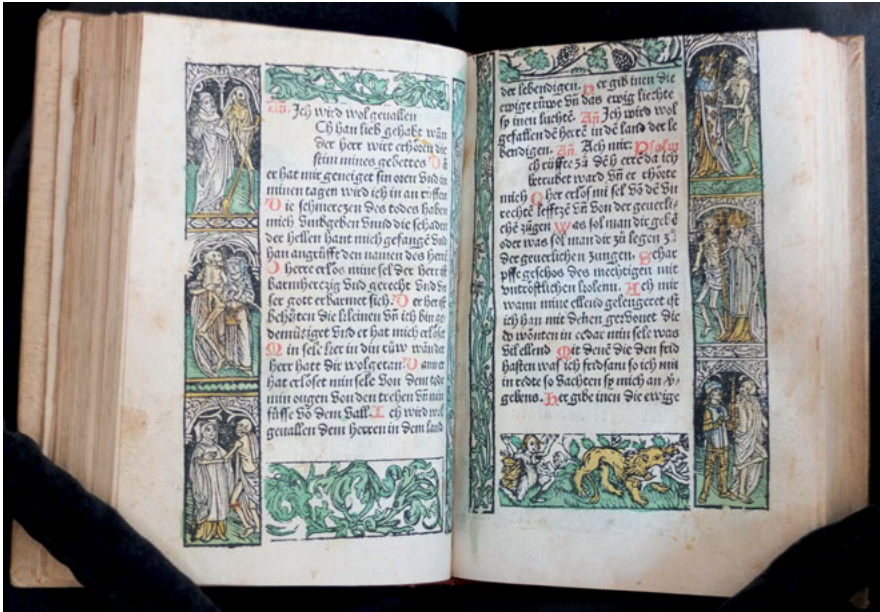 An̄. Jch wird wol geuallen
Ch han lieb gehabt wān
der herr wirt erhören die
stim mines gebettes Vā
er hat mir geneiget sin oren vnd in
minen tagen wird ich in an rüffen
Die schmerczen des todes haben
mich vmbgeben vnnd die schaden
der hellen hant mich gefangē vnd
han angrüfft den namen des herrē
O herre erlös mine sel der herr ist
barmherczig vnd gerecht vnd vn
ser gott erbarmet sich. Der her ist
behüten die kleinen vn̄ ich bin ge
demütiget vnd er hat mich erlöset
Min sele ker in din rüw wān der
herr hatt dir wolgetan. Vann er
hat erlöset min sele von dem tode
min ougen von den trehen vn̄ min
füsse vō dem vall. Jch wird wol
geuallen dem herren in dem land
der lebendigen. Her gib inen die
ewige rüwe vn̄ das ewig liechte
sy inen luchtē. An̄ Jch wird wol
gefallen dē herrē in dē land der le
bendigen. An̄. Ach mir. Psalm
ch rüffte zū dē herrē da ich
betrubet ward vn̄ er erhörte
mich O her erlös mī sel vō dē vn
rechtē lefftzē vn̄ von der geuerli⸗
chē zūgen Was sol man dir gebē
oder was sol man dir zū legen zū
der geuerlichen zungen. Schar
pffe geschos des mechtigen mit
vntrostlichen kolenn. Ach mir
wann mine ellend gelengeret ist
ich han mit dehen gewonet die
do wonten in cedar min sele was
vil ellend Mit denē die den frid
hasten was ich fredsam so ich mit
in redt so vachten sy mich an v̄⸗
gebens. Her gibe inen die ewige